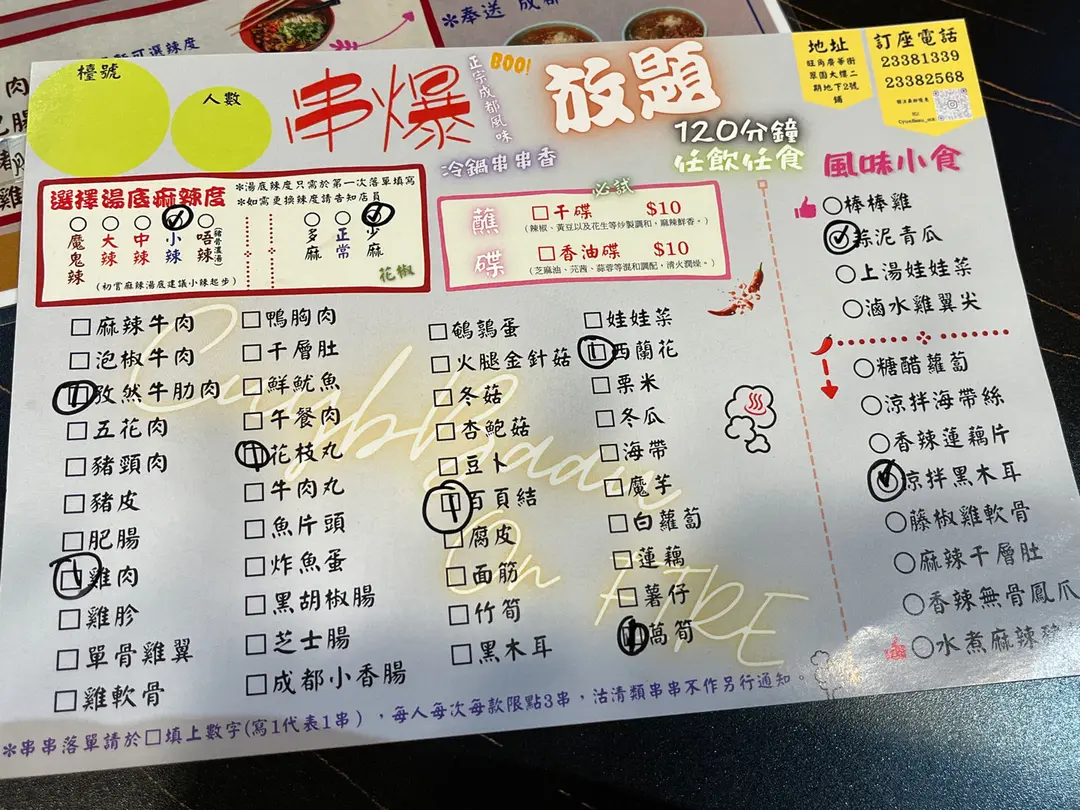 可選辣度
*奉送 成都
肉
雞
檯號
人數
串爆
正宗成都風味
BOO!
放題
120分鐘
任飲任食
冷鍋串串香
地址
旺角廣華街
翠園大樓二
期地下2號
舖
訂座電話
23381339
23382568
選擇湯底麻辣度
*湯底辣度只需於第一次落單填寫
*如需更換辣度請告知店員
魔鬼辣
大辣
中辣
小辣
唔辣
(豬骨濃湯)
多麻
正常
少麻
(初嘗麻辣湯底建議小辣起步)
花椒
必試
蘸碟
□干碟 $10
(辣椒、黃豆以及花生等炒製調和，麻辣鮮香。)
□香油碟 $10
(芝麻油、芫茜、蒜蓉等混和調配，清火潤燥。)
□麻辣牛肉
□泡椒牛肉
□孜然牛肋肉
□五花肉
□豬頸肉
□豬皮
□肥腸
□雞肉
□雞胗
□單骨雞翼
□雞軟骨
□鴨胸肉
□千層肚
□鮮魷魚
□午餐肉
□花枝丸
□牛肉丸
□魚片頭
□炸魚蛋
□黑胡椒腸
□芝士腸
□成都小香腸
□鵪鶉蛋
□火腿金針菇
□冬菇
□杏鮑菇
□豆卜
□百頁結
□腐皮
□面筋
□竹筍
□黑木耳
□娃娃菜
□西蘭花
□粟米
□冬瓜
□海帶
□魔芋
□白蘿蔔
□蓮藕
□薯仔
□萵筍
On FIRE
風味小食
○棒棒雞
○蒜泥青瓜
○上湯娃娃菜
○滷水雞翼尖
○糖醋蘿蔔
○涼拌海帶絲
○香辣蓮藕片
○涼拌黑木耳
○藤椒雞軟骨
○麻辣千層肚
○香辣無骨鳳爪
○水煮麻辣
*串串落單請於□填上數字(寫1代表1串)，每人每次每款限點3串，沽清類串串不作另行通知。